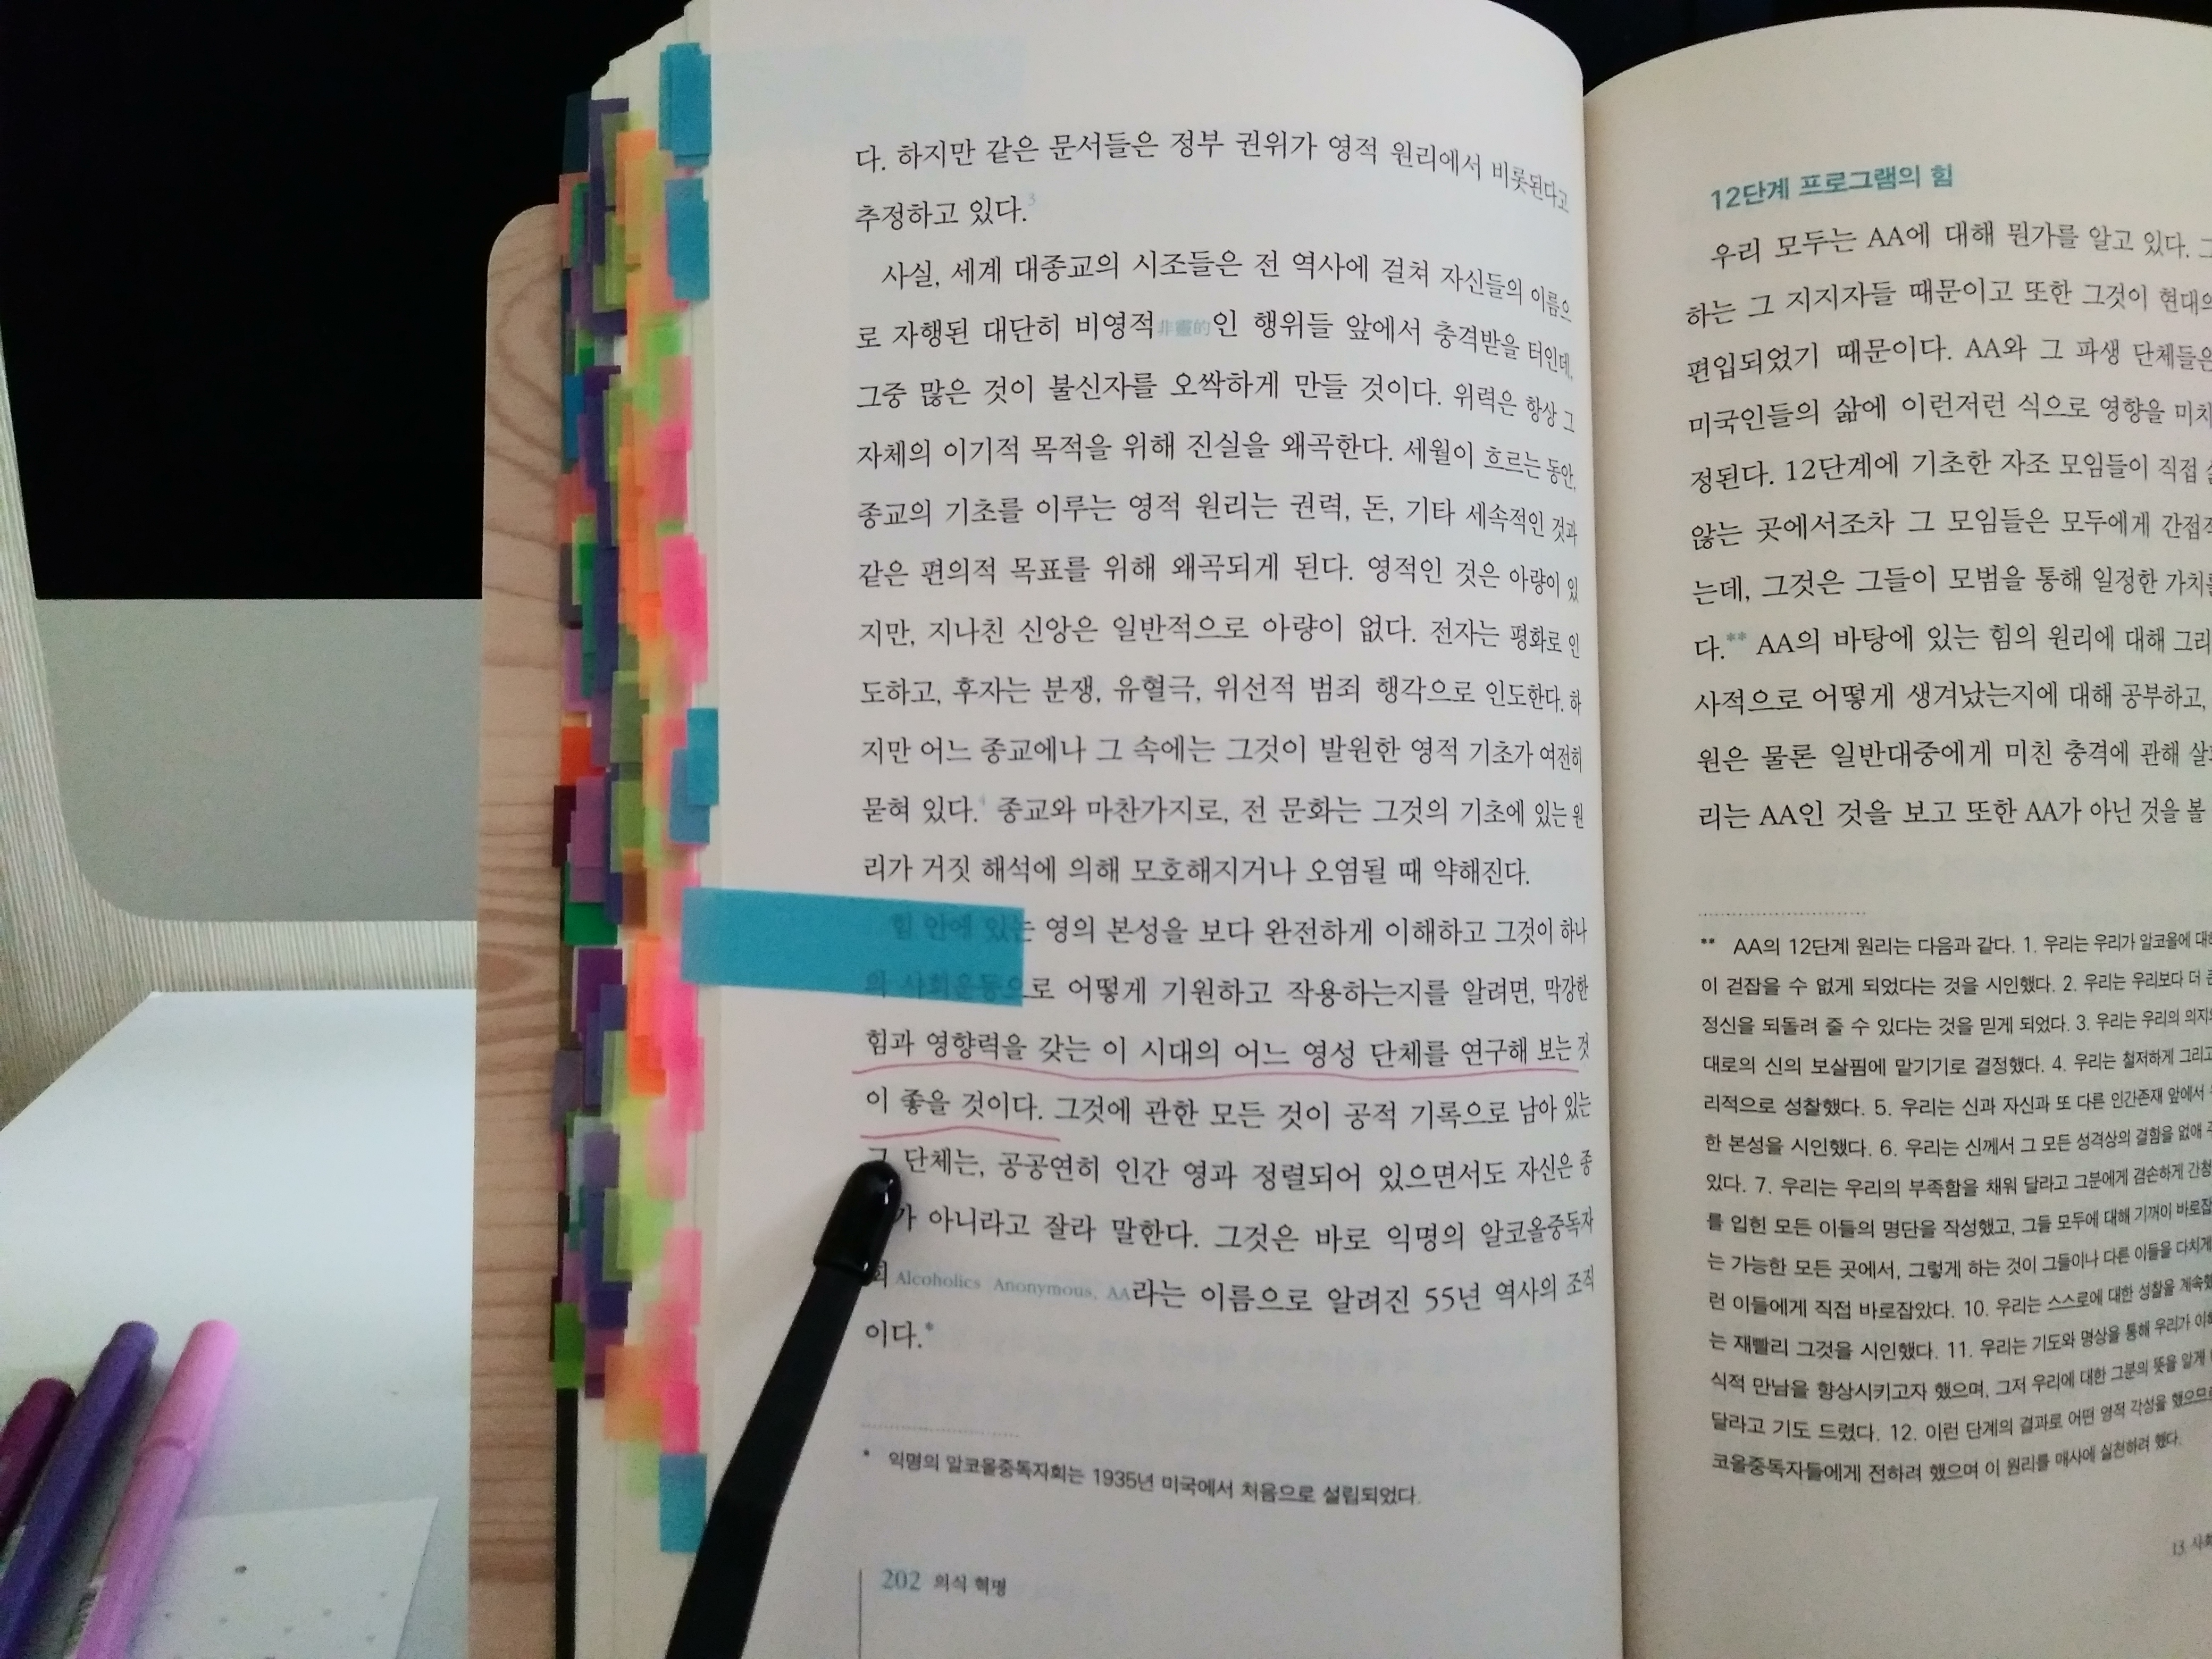 다. 하지만 같은 문서들은 정부 권위가 영적 원리에서 비롯된다고
추정하고 있다.3
사실, 세계 대종교의 시조들은 전 역사에 걸쳐 자신들의 이름으
로 자행된 대단히 비영적非靈的인 행위들 앞에서 충격받을 터인데,
그중 많은 것이 불신자를 오싹하게 만들 것이다. 위력은 항상 그
자체의 이기적 목적을 위해 진실을 왜곡한다. 세월이 흐르는 동안,
종교의 기초를 이루는 영적 원리는 권력, 돈, 기타 세속적인 것과
같은 편의적 목표를 위해 왜곡되게 된다. 영적인 것은 아량이 있
지만, 지나친 신앙은 일반적으로 아량이 없다. 전자는 평화로 인
도하고, 후자는 분쟁, 유혈극, 위선적 범죄 행각으로 인도한다. 하
지만 어느 종교에나 그 속에는 그것이 발원한 영적 기초가 여전히
묻혀 있다.4 종교와 마찬가지로, 전 문화는 그것의 기초에 있는 원
리가 거짓 해석에 의해 모호해지거나 오염될 때 약해진다.
힘 안에 있는 영의 본성을 보다 완전하게 이해하고 그것이 하나
의 사회운동으로 어떻게 기원하고 작용하는지를 알려면, 막강한
힘과 영향력을 갖는 이 시대의 어느 영성 단체를 연구해 보는 것
이 좋을 것이다. 그것에 관한 모든 것이 공적 기록으로 남아 있는
그 단체는, 공공연히 인간 영과 정렬되어 있으면서도 자신은 종
가 아니라고 잘라 말한다. 그것은 바로 익명의 알코올중독자
회Alcoholics Anonymous, AA라는 이름으로 알려진 55년 역사의 조직
이다.*
* 익명의 알코올중독자회는 1935년 미국에서 처음으로 설립되었다.
202 의식 혁명
12단계 프로그램의 힘
우리 모두는 AA에 대해 뭔가를 알고 있다. 그
하는 그 지지자들 때문이고 또한 그것이 현대의
편입되었기 때문이다. AA와 그 파생 단체들은
미국인들의 삶에 이런저런 식으로 영향을 미치
정된다. 12단계에 기초한 자조 모임들이 직접
않는 곳에서조차 그 모임들은 모두에게 간접적
는데, 그것은 그들이 모범을 통해 일정한 가치를
다.** AA의 바탕에 있는 힘의 원리에 대해 그리
사적으로 어떻게 생겨났는지에 대해 공부하고,
원은 물론 일반대중에게 미친 충격에 관해
리는 AA인 것을 보고 또한 AA가 아닌 것을 볼
** AA의 12단계 원리는 다음과 같다. 1. 우리는 우리가 알코올에 대해
이 걷잡을 수 없게 되었다는 것을 시인했다. 2. 우리는 우리보다 더 큰
정신을 되돌려 줄 수 있다는 것을 믿게 되었다. 3. 우리는 우리의 의지와
대로의 신의 보살핌에 맡기기로 결정했다. 4. 우리는 철저하게 그리고
리적으로 성찰했다. 5. 우리는 신과 자신과 또 다른 인간존재 앞에서
한 본성을 시인했다. 6. 우리는 신께서 그 모든 성격상의 결함을 없애
있다. 7. 우리는 우리의 부족함을 채워 달라고 그분에게 겸손하게 간청
를 입힌 모든 이들의 명단을 작성했고, 그들 모두에 대해 기꺼이 바로잡
는 가능한 모든 곳에서, 그렇게 하는 것이 그들이나 다른 이들을 다치게
런 이들에게 직접 바로잡았다. 10. 우리는 스스로에 대한 성찰을 계속했
는 재빨리 그것을 시인했다. 11. 우리는 기도와 명상을 통해 우리가 이해
식적 만남을 향상시키고자 했으며, 그저 우리에 대한 그분의 뜻을 알게
달라고 기도 드렸다. 12. 이런 단계의 결과로 어떤 영적 각성을 했으므로
코올중독자들에게 전하려 했으며 이 원리를 매사에 실천하려 했다.
13. 사회